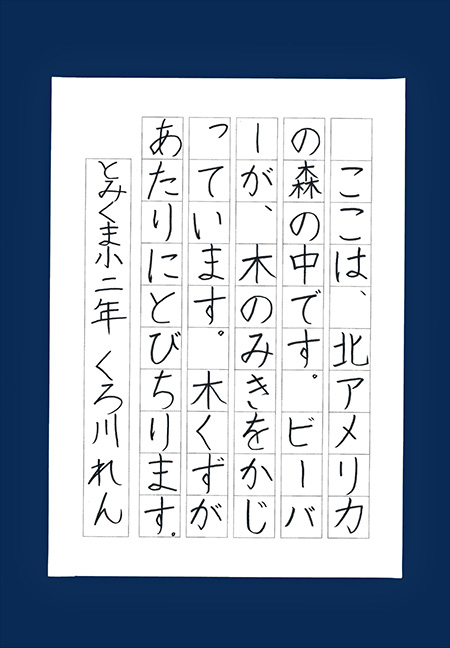 ここは、北アメリカ
の森の中です。ビーバ
ーが、木のみきをかじ
っています。木くずが
あたりにとびちります。
とみくま小二年 くろ川れん